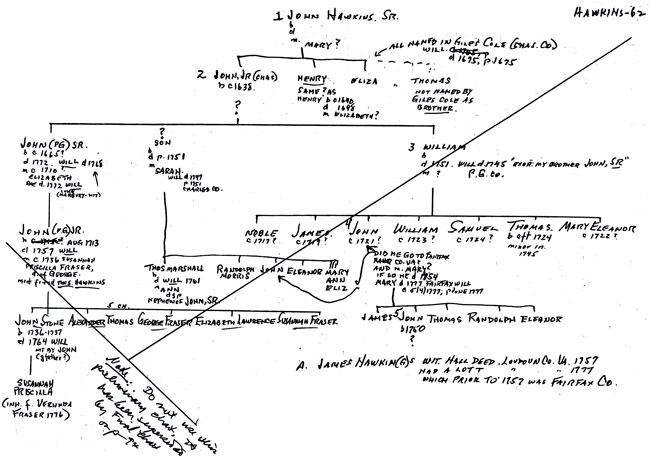 HAWKINS-62
1 JOHN HAWKINS, SR.
b
d
m.
MARY ?
ALL NAMED IN GILES COLE (CHAS. CO)
WILL.
d 1675, p 1675
2 JOHN, JR (CHAS)
b c 1638.
HENRY
SAME? AS
HENRY b c 1640
d 1698
m ELIZABETH?
ELIZA
THOMAS
NOT NAMED BY
GILES COLE AS
BROTHER.
?
JOHN (PG) SR.
b c 1665?
d 1772. WILL d 1768
m c 1710?
ELIZABETH
d 1772 WILL
?
SON
b
d p. 1751
m
SARAH.
WILL d 1747
p 1751
CHARLES CO.
3 WILLIAM
b
d 1751. WILL d 1745 "EXOR. MY BROTHER JOHN, SR"
m ? P.G. CO.
NOBLE
c 1717?
JAMES
c 1719?
4 JOHN
c 1721?
WILLIAM
c 1723?
SAMUEL
c 1724?
THOMAS.
b aft 1724
MINOR IN
1745
MARY ELEANOR
c 1722?
JOHN (PG) JR.
AUG 1713
d 1757 WILL
m c 1736 SUSANNAH
PRISCILLA FRASER,
d of GEORGE.
THOS MARSHALL
b
d WILL 1761
m ANN
dsp
NEPHEW OF JOHN, SR.
RANDOLPH
MORRIS
JOHN
ELEANOR
MARY
ANN
ELIZ
DID HE GO TO FAIRFAX
CO. VA?
AND m. MARY?
IF SO HE d 1754
MARY d 1777 FAIRFAX WILL
1777, p JUNE 1777
5 CH.
JOHN STONE
b 1736-1737
d 1764 WILL
MT BY JOHN
ALEXANDER
THOMAS
GEORGE FRASER
ELIZABETH
LAWRENCE
SUSANNAH FRASER.
JAMES 5
JOHN
b 1750
?
THOMAS
RANDOLPH
ELEANOR
SUSANNAH
PRISCILLA
(INH. f. VERLINDA
FRASER 1776)
A. JAMES HAWKIN(G)S WIT. HALL DEED. LOUDOUN CO. VA. 1757
HAD A LOTT " " 1777
WHICH PRIOR TO 1757 WAS FAIRFAX CO.
Note: Do not use this
preliminary chart, it
has been superseded
by Final chart
on p.